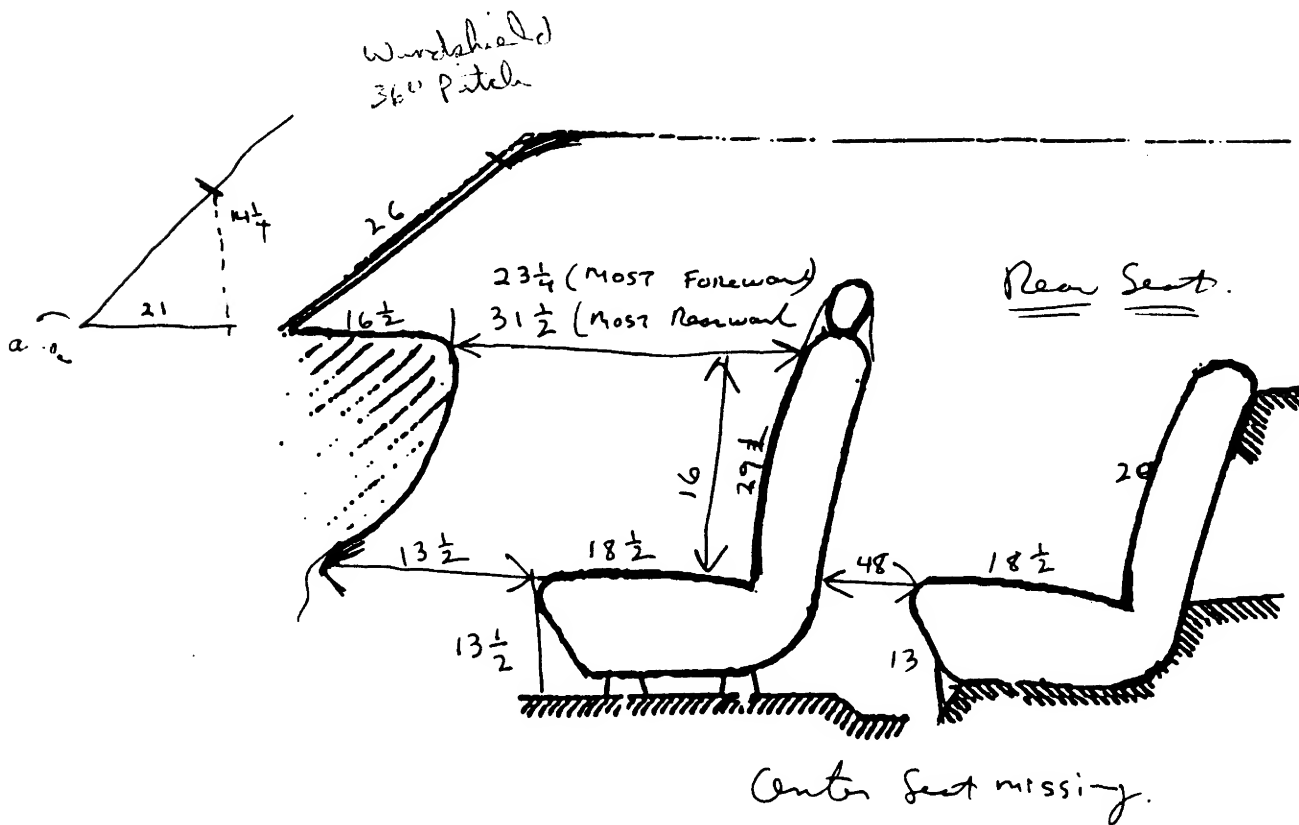 Windshield
36° Pitch
14 1/4
26
21
23 1/4 (Most Foreward)
31 1/2 (Most Rearward
16 1/2
Rear Seat.
16
29 1/2
13 1/2
18 1/2
48
18 1/2
13 1/2
13
Center Seat missing.